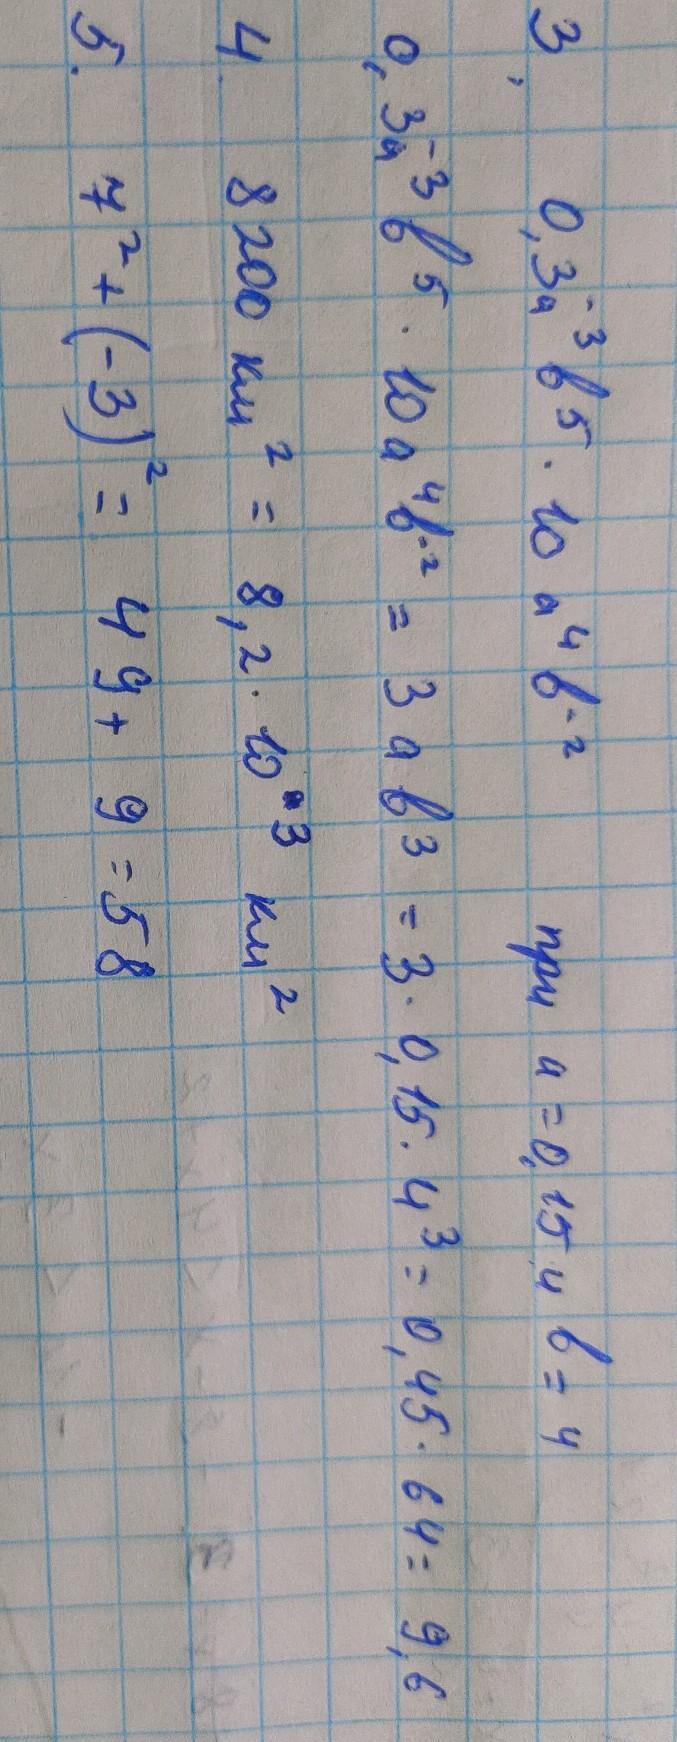 3, 0,3a⁻³b⁵ · 10a⁴b⁻² при a = 0,15 и b = 4
0,3a⁻³b⁵ · 10a⁴b⁻² = 3ab³ = 3 · 0,15 · 4³ = 0,45 · 64 = 9,6
4. 8200 км² = 8,2 · 10³ км²
5. 7² + (-3)² = 49 + 9 = 58